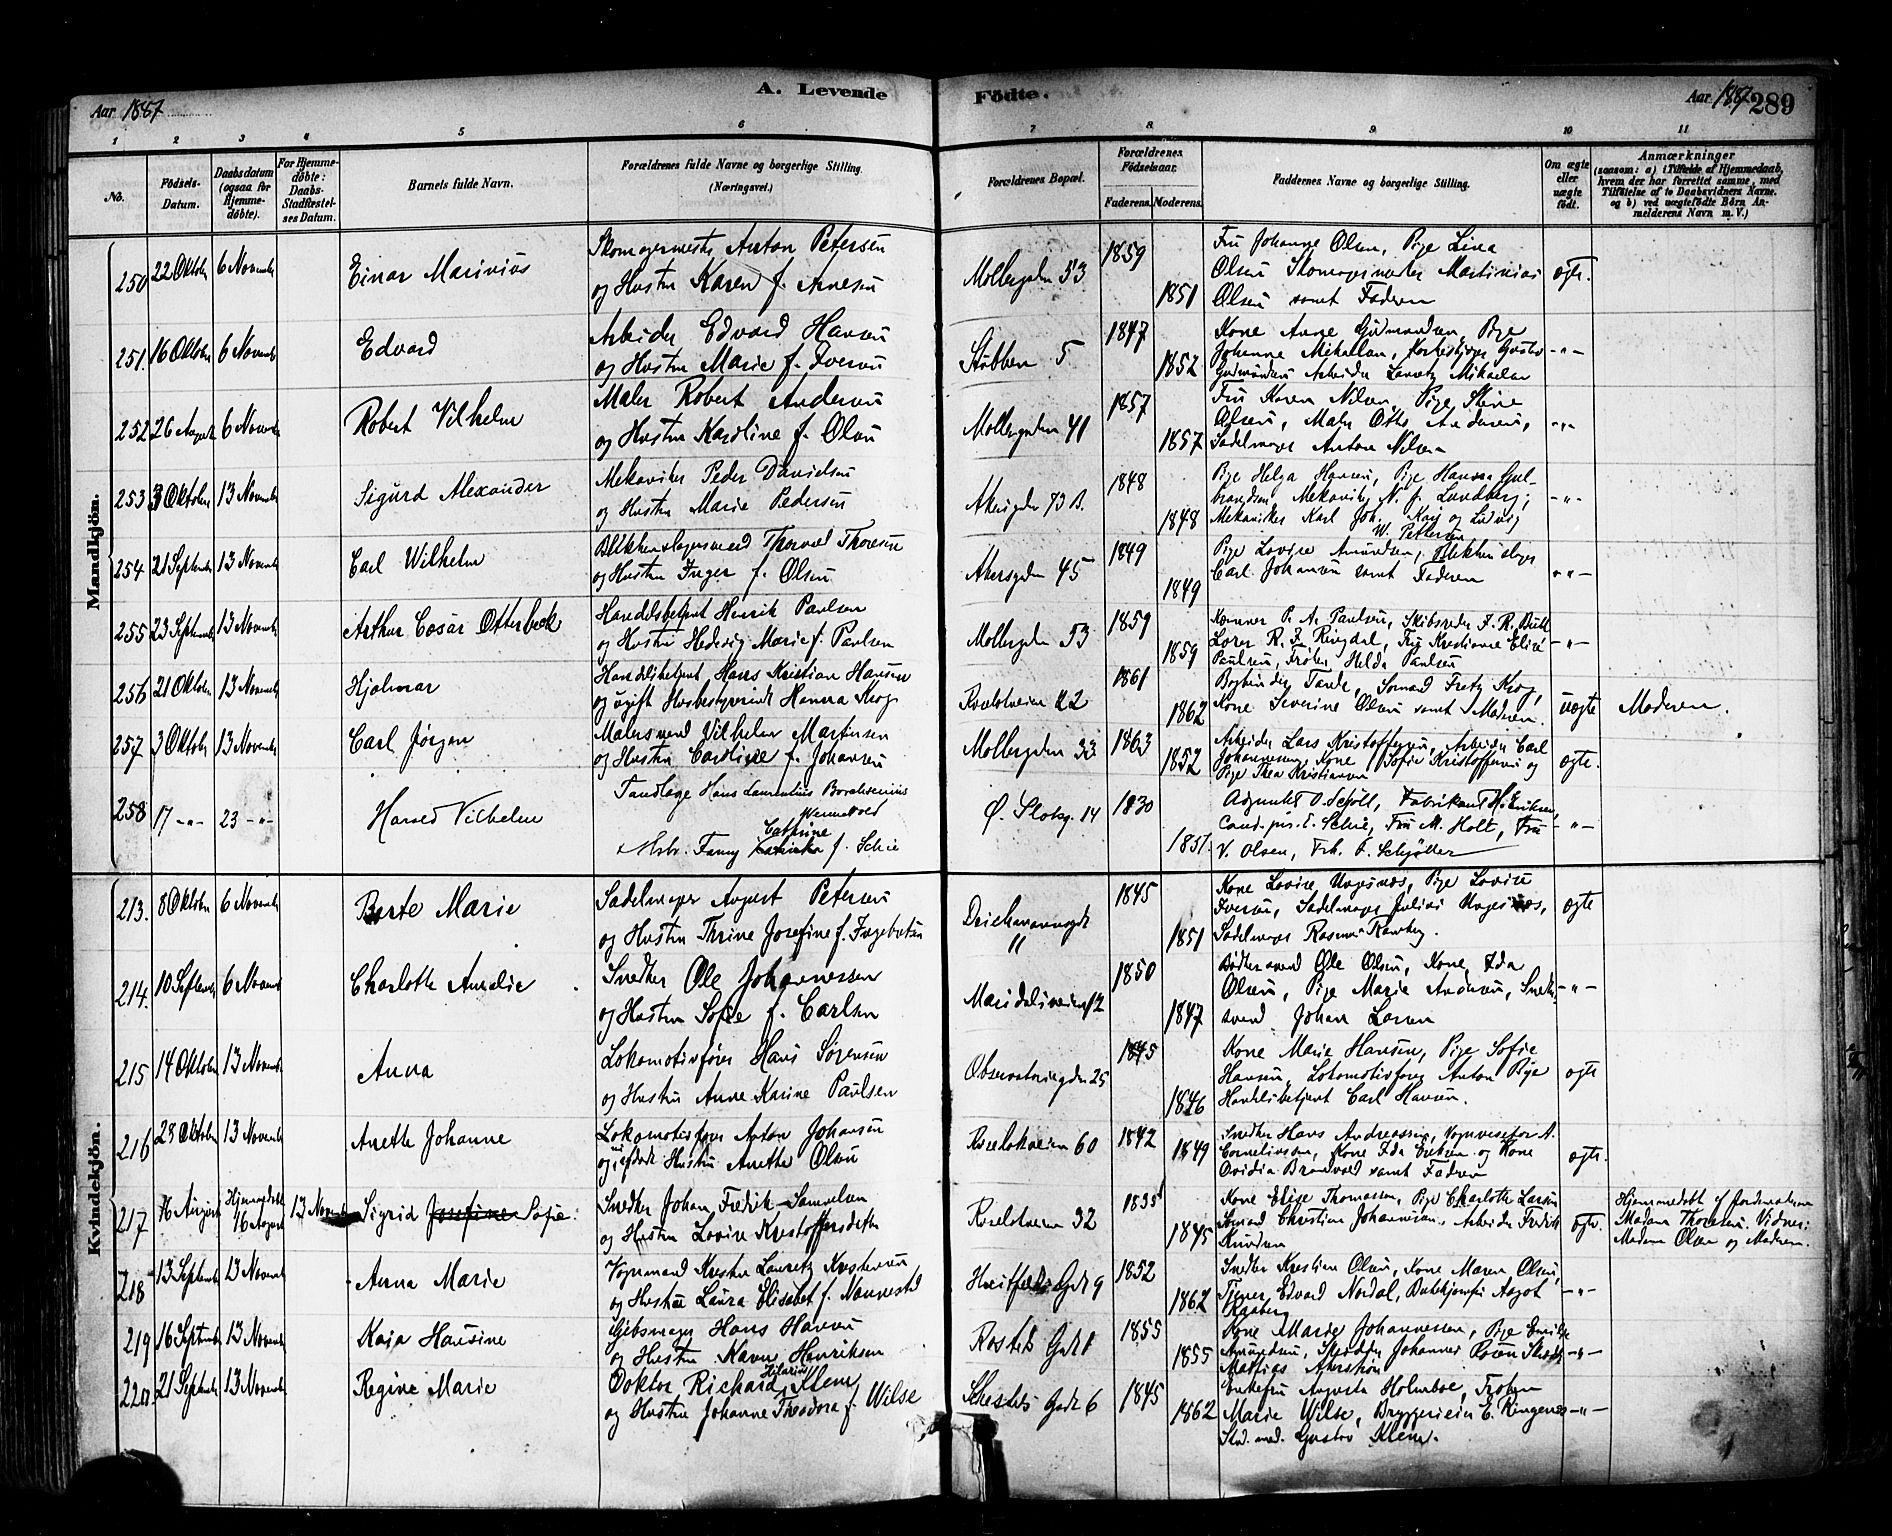 Aar 1887
A. Levende
Födte.
Aar 1887 289
1 2 3 4 5 6 7 8 9 10 11
No.
Födsels-Datum.
Daabsdatum (ogsaa for Hjemme-döbte).
For Hjemme-döbte: Daabs-Stadfæstel-ses Datum.
Barnets fulde Navn.
Forældrenes fulde Navne og borgerlige Stilling.
(Næringsvei.)
Forældrenes Bopæl.
Forældrenes Födselsaar.
Faderens. Moderens.
Faddernes Navne og borgerlige Stilling.
Om ægte eller uægte födt.
Anmærkninger
(saasom: a) i Tilfælde af Hjemmedaab, hvem der har forrettet samme, med Tilföielse af to Daabsvidners Navne, og b) ved uægtefödte Börn Anmelderens Navn m. V.)
Mandkjön.
250 22 Oktober 6 Novemb Einar Marinius
Skomagermester Anton Petersen
og Hustru Karen f. Arnesen
Møllergaden 53 1859 1851
Fru Johanne Olsen, Pige Lina
Olsen Skomagermester Martinius
Olsen samt Faderen
ægte.
251. 16 Oktober 6 Novemb Edvard
Arbeider Edvard Hansen
og Hustru Marie f. Iversen
Stubben 5 1847 1852
Kone Anne Gudmundsen, Pige
Johanne Mikaelsen,
Gudmundsen Arbeider Mikaelsen
-"-
252 26 August 6 Novemb Robert Vilhelm
Maler Robert Andersen
og Hustru Karoline f. Olsen
Møllergaden 41 1857 1857
Fru Karen Nilsen, Pige Stine
Olsen, Maler Otto Andersen,
Sadelmager Anton Nilsen
-"-
253 3 Oktober 13 Novemb Sigurd Alexander
Mekaniker Peder Davidsen
og Hustru Marie Pedersen
Akersgaden 73 B. 1848 1848
Pige Helga Hansen, Pige Hanna Gul-
brandsen, Mekaniker N. J. Lundberg,
Mekaniker Karl Joh. Kay og Ludvig
W. Pettersen
-"-
254 21 Septemb 13 Novemb Carl Wilhelm
Blikkenslagersvend Thorvald Thoresen
og Hustru Inger f. Olsen
Akersgaden 45 1849 1849
Pige Lovise Amundsen, Blikkenslager
Carl Johansen samt Faderen
-"-
255 23 Septemb 13 Novemb Arthur Cæsar Otterbeck
Handelsbetjent Henrik Paulsen
og Hustru Hedevig Marie f. Paulsen
Møllergaden 53 1859 1859
P. A. Paulsen, Skibsreder F. R. Bull
R. F. Ringdal, Fru Kristianne Elise
Paulsen, Frøken Hilda Paulsen
-"-
256 21 Oktober 13 Novemb Hjalmar
Handelsbetjent Hans Kristian Hansen
og ugift Husbestyrerinde Hanna Krog
22 1861 1862
Bogbinder Tande, Sømand Fretz Krog,
Kone Severine Olsen samt Moderen.
uægte Moderen.
257 3 Oktober 13 Novemb Carl Jörgen
Malersvend Vilhelm Martinsen
og Hustru Caroline f. Johansen
Møllergaden 33 1863 1852
Arbeider Lars Kristoffersen, Arbeider Carl
Johannesen, Kone Sofie Kristoffersen og
Pige Thea Kristiansen
ægte.
258 17 -"- 23 -"- Harald Vilhelm
Tandlæge Hans Laurentius Borchsenius
Wennevold
Cathrine
& Hsbr. Fanny f. Schie
Ø. Slotsg. 14 1830 1851.
Adjunkt O. Schött, Fabrikant H. Eriksen,
Cand. pis. E. Schie, Fru M. Holt, Fru
V. Olsen, Frk. F. Schjøtler
-"-
Kvindekjön.
213. 8 Oktober 6 Novemb Berte Marie
Sadelmager August Petersen
og Hustru Thrine Josefine f. Ingebretsen
Deichmannsgade 11 1845 1851
Kone Lovise Ungesnæs, Pige Lovise
Iversen, Sadelmager Julius Ungesnæs,
Sadelmager Rasmus Ramberg.
ægte
214. 10 Septemb 6 Novemb Charlotte Amalie
Snedker Ole Johannessen
og Hustru Sofie f. Carlsen
Maridalsveien 12 1850 1847
Bødkersvend Ole Olsen, Kone Ida
Olsen, Pige Marie Andersen, Snedk-
svend Johan Larsen
-"-
215 14 Oktober 13 Novemb Anna
Lokomotivfører Hans Sørensen
og Hustru Anne Karine Paulsen
Observatoriegaden 25 1845 1846
Kone Marie Hansen, Pige Sofie
Hansen, Lokomotivfører Anton Bye
Handelsbetjent Carl Hansen.
ægte
216 28 Oktober 13 Novemb Anette Johanne
Lokomotivfører Anton Johansen
og afdøde Hustru Anette Olsen
60 1842 1849
Snedker Hans Andreassen, Vognvisitør A.
Corneliussen, Kone Ida Eriksen og Kone
Ovidia Brandvold samt Faderen
ægte.
217 16 August Hjemmedøbt 16 August 13 Novemb Sigrid Josefine Sofie.
Snedker Johan Fredrik Samuelsen
og Hustru Lovise Kristoffersdatter
32 1835 1845
Kone Elise Thomassen, Pige Charlotte Larsen
Sømand Christian Johannesen, Arbeider Fredrik
Knudsen
ægte.
Hjemmedøbt af Jordemoderen
Madam Thorsten. Vidner:
Madam Olsen og Moderen.
218 13 Septemb 13 Novemb Anna Marie
Vognmand Kristen Lauretz Kristensen
og Hustru Laura Elisabet f. Nannestad
Huitfeldts Gade 9 1852 1862
Snedker Kristian Olsen, Kone Maren Olsen,
Tjener Edvard Nordal, Butikjomfru Aagot
Raaberg
-"-
219 16 Septemb 13 Novemb Kaja Hansine
Gibsmager Hans Hansen
og Hustru Karen Henriksen
Rosteds Gade 1 1855 1855
Kone Marie Johannessen, Pige Emilie
Amundsen, Johannes
Mattias
-"-
220. 21 Septemb 13 Novemb Regine Marie
Doktor Richard Hilarius Klem
og Hustru Johanne Theodora f. Wilse
Gade 6 1845 1862
Enkefru Augusta Holmboe, Frøken
Marie Wilse, Bryggerieier E. Ringnes
Stud. med. Gustav Klem.
-"-